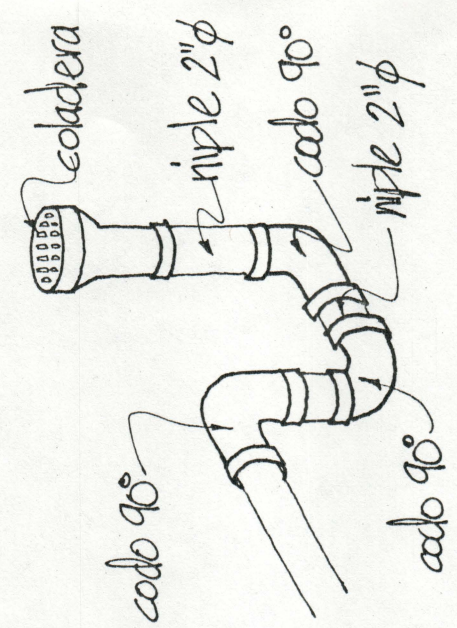 coladera
niple 2"φ
codo 90°
niple 2"φ
codo 90°
codo 90°